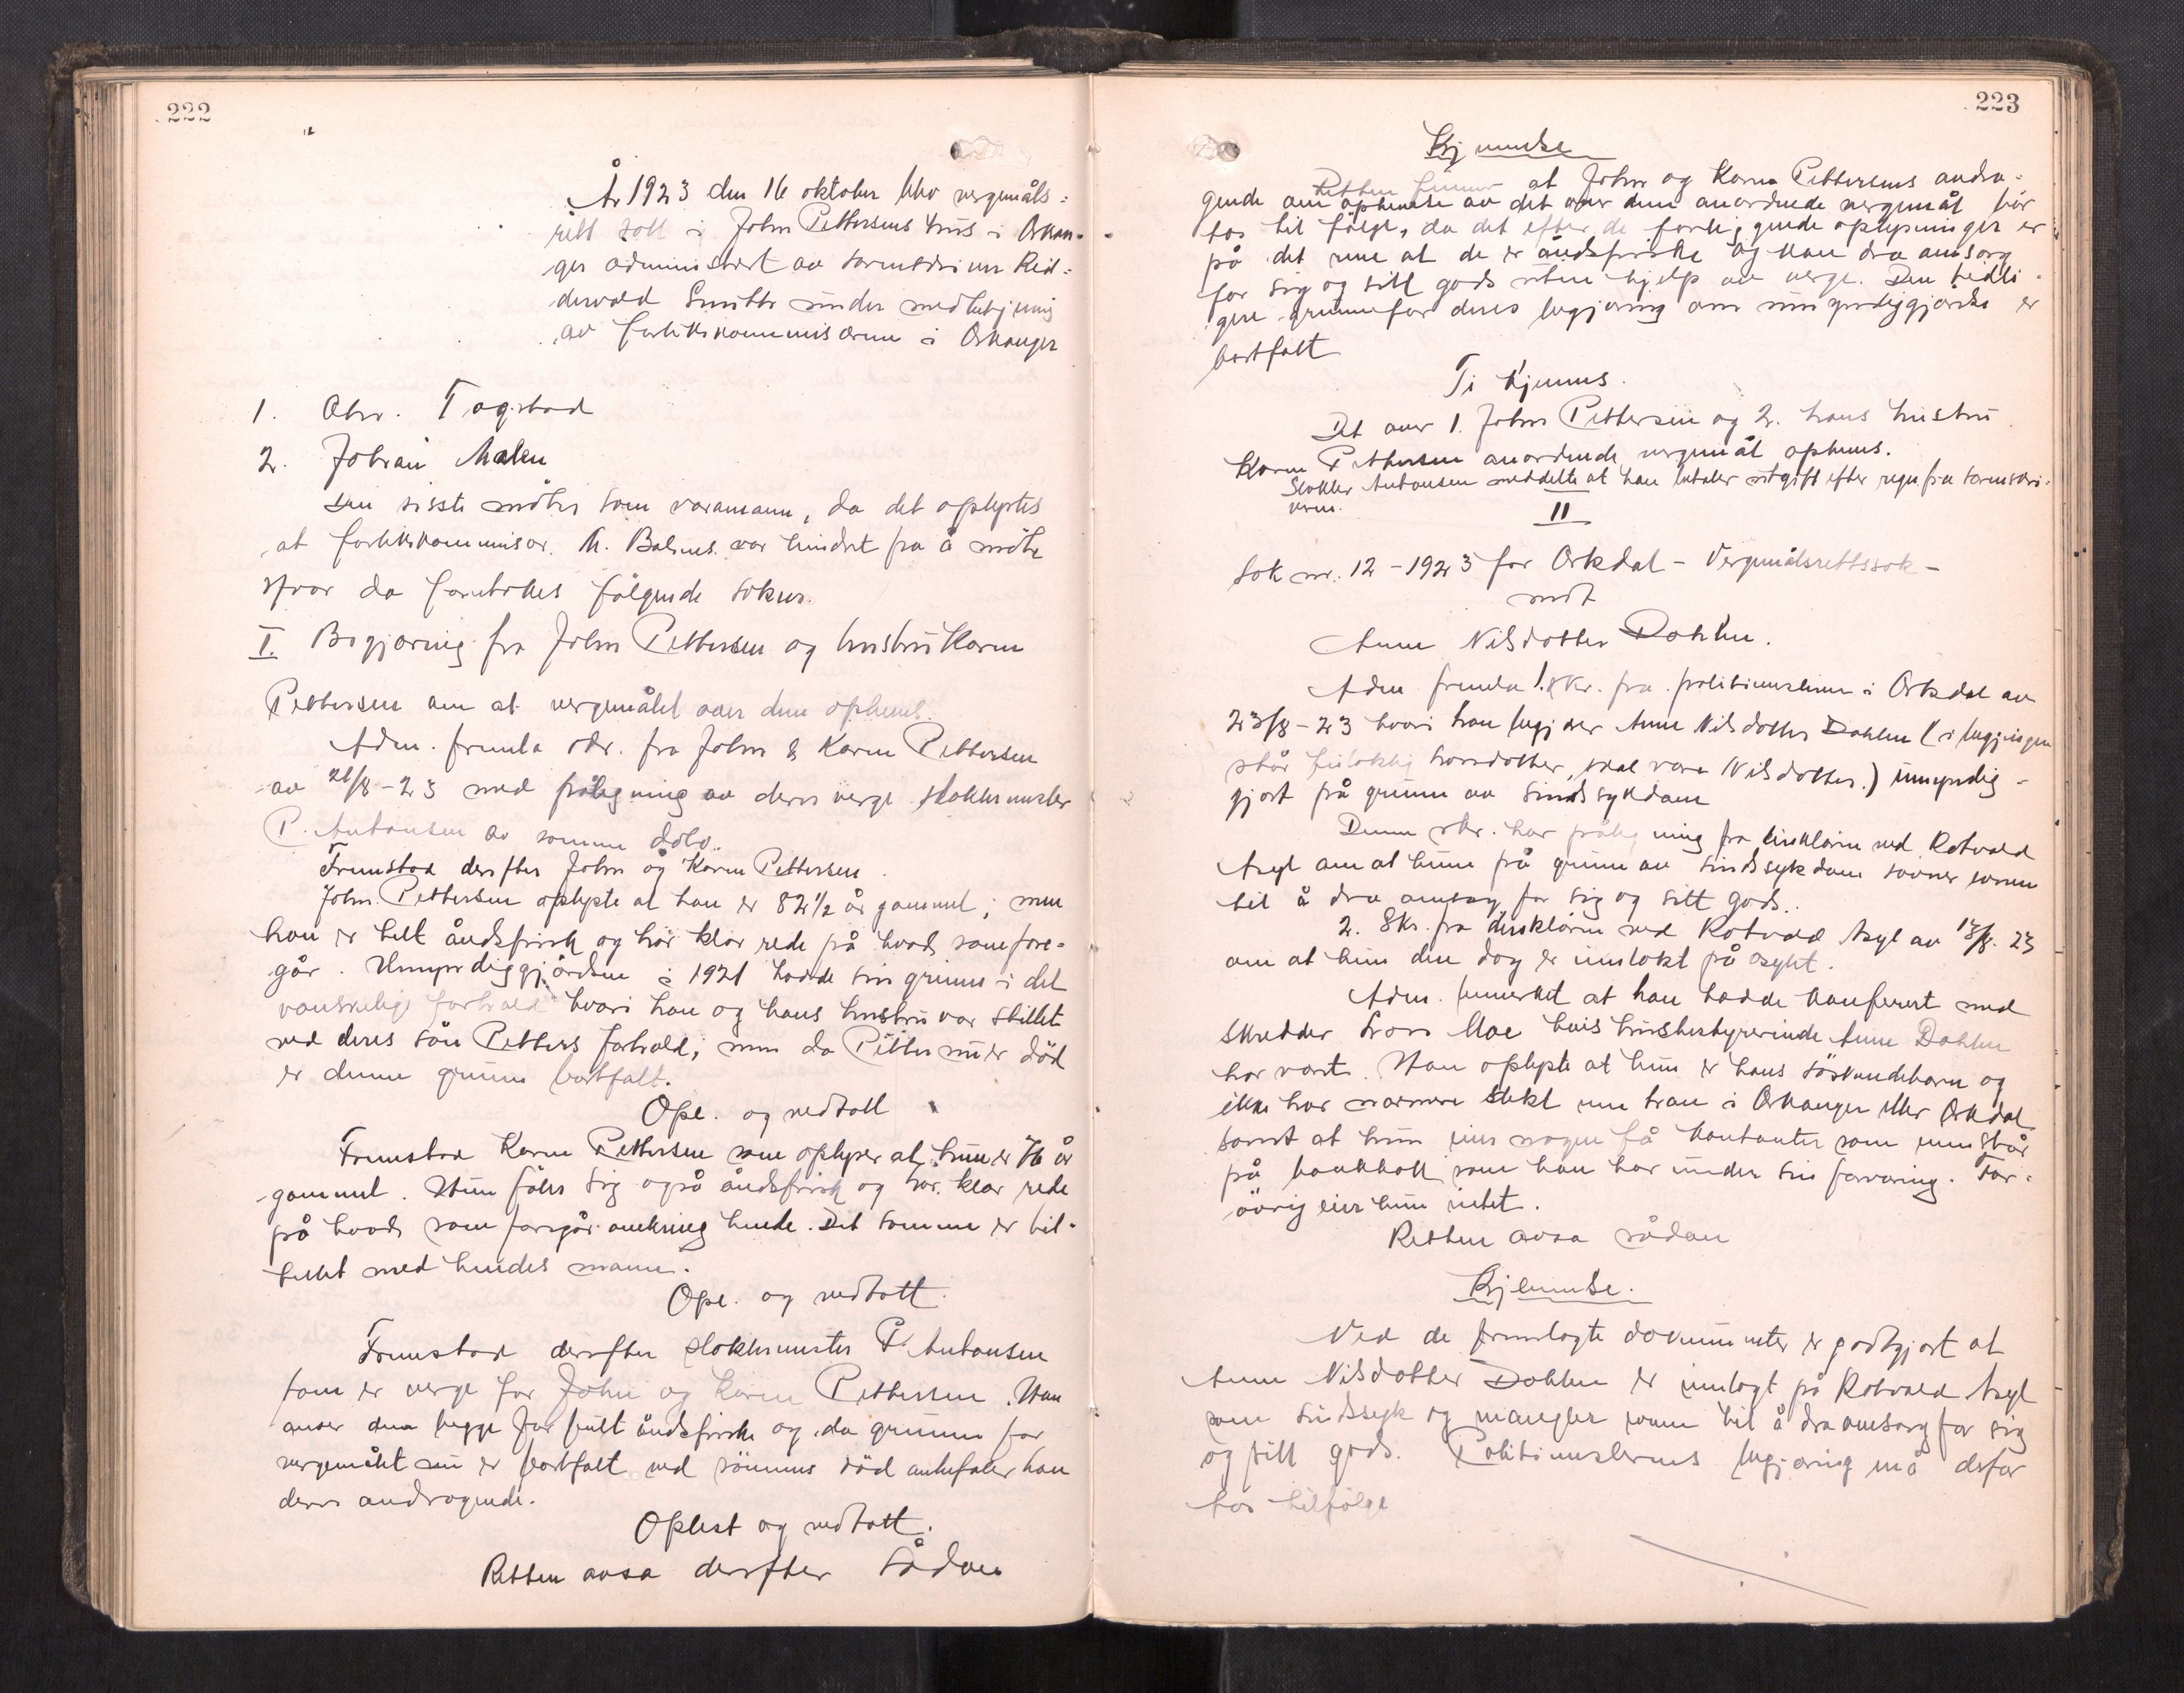 222
År 1923 den 16 oktober blev vergemåls-
rett satt i John Pettersens hus i Orkan-
ger administrert av sorenskriver Rid-
dervold Smith under medbetjening
av forlikskommisærene i Orkanger
1. Chr. Togstad
2. Johan Malen
Den siste møter som varamann, da det oplystes
at forlikskommisær M. Balsnes var hindret fra å møte
Hvor da foretokes følgende saker.
I. Begjæring fra John Pettersen og hustru Karen
Pettersen om at vergemålet over dem opheves.
Adm. fremla skr. fra John & Karen Pettersen
av 21/8-23 med påtegning av deres verge slaktermester
P. Antonsen av samme dato.
Fremstod derefter John og Karen Pettersen.
John Pettersen oplyste at han er 82 1/2 år gammel; men
han er helt åndsfrisk og har klar rede på hvad som fore-
går. Umyndiggjørelsen i 1921 hadde sin grunn i det
vanskelige forhold hvori han og hans hustru var stillet
ved deres søn Petters forhold; men da Petter nu er død
er denne grunn bortfalt.
Opl. og vedtatt
Fremstod Karen Pettersen som oplyser at hun er 76 år
gammel. Hun føler sig også åndsfrisk og har klar rede
på hvad som foregår omkring hende. Det samme er til-
fellet med hendes mann.
Opl. og vedtatt.
Fremstod derefter slaktermester P. Antonsen
som er verge for John og Karen Pettersen. Han
anser dem begge for fullt åndsfriske og da grunnen for
vergemålet nu er bortfalt ved sønnens død anbefaler han
deres andragende.
Oplest og vedtatt.
Retten avsa derefter sådan
223
Kjennelse
Retten finner at John og Karen Pettersens andra-
gende om ophevelse av det over dem anordnede vergemål bør
tas til følge, da det efter de foreliggende oplysninger er
på det rene at de er åndsfriske og kan dra omsorg
for sig og sitt gods uten hjelp av verge. Den tidli-
gere grunn for deres begjæring om umyndiggjørelse er
bortfalt
Ti kjennes.
Det over 1. John Pettersen og 2. hans hustru
Karen Pettersen anordnede vergemål opheves.
Slakter Antonsen meddelte at han betaler utgift efter regn fra sorenskri-
veren.
II
Sak nr. 12-1923 for Orkdal - Vergemålsrettssak -
mot
Anne Nilsdotter Dahlen.
Adm. fremla 1. skr. fra politimesteren i Orkdal av
23/8-23 hvori han begjærer Anne Nilsdotter Dahlen (i begjæringen
står feilaktig Larsdotter, skal være Nilsdotter.) umyndig-
gjort på grunn av sindssykdom
Denne skr. har påtegning fra direktøren ved Rotvold
Asyl om at hun på grunn av sindssykdom savner evnen
til å dra omsorg for sig og sitt gods.
2. Skr. fra direktøren ved Rotvold Asyl av 13/8-23
om at hun den dag er innlakt på asylet.
Adm. bemerket at han hadde konferert med
skredder Lars Moe hvis husbestyrerinde Anne Dahlen
har vært. Han oplyste at hun er hans søskendebarn og
ikke har nærmere slekt enn han i Orkanger eller Orkdal
samt at hun eier nogen få kontanter som innestår
på bankbok som han har under sin forvaring. For-
øvrig eier hun intet.
Retten avsa sådan
Kjennelse.
Ved de fremlagte dokumenter er godtgjort at
Anne Nilsdotter Dahlen er innlagt på Rotvold Asyl
som sindssyk og mangler evnen til å dra omsorg for sig
og sitt gods. Politimesterens begjæring må derfor
tas tilfølge